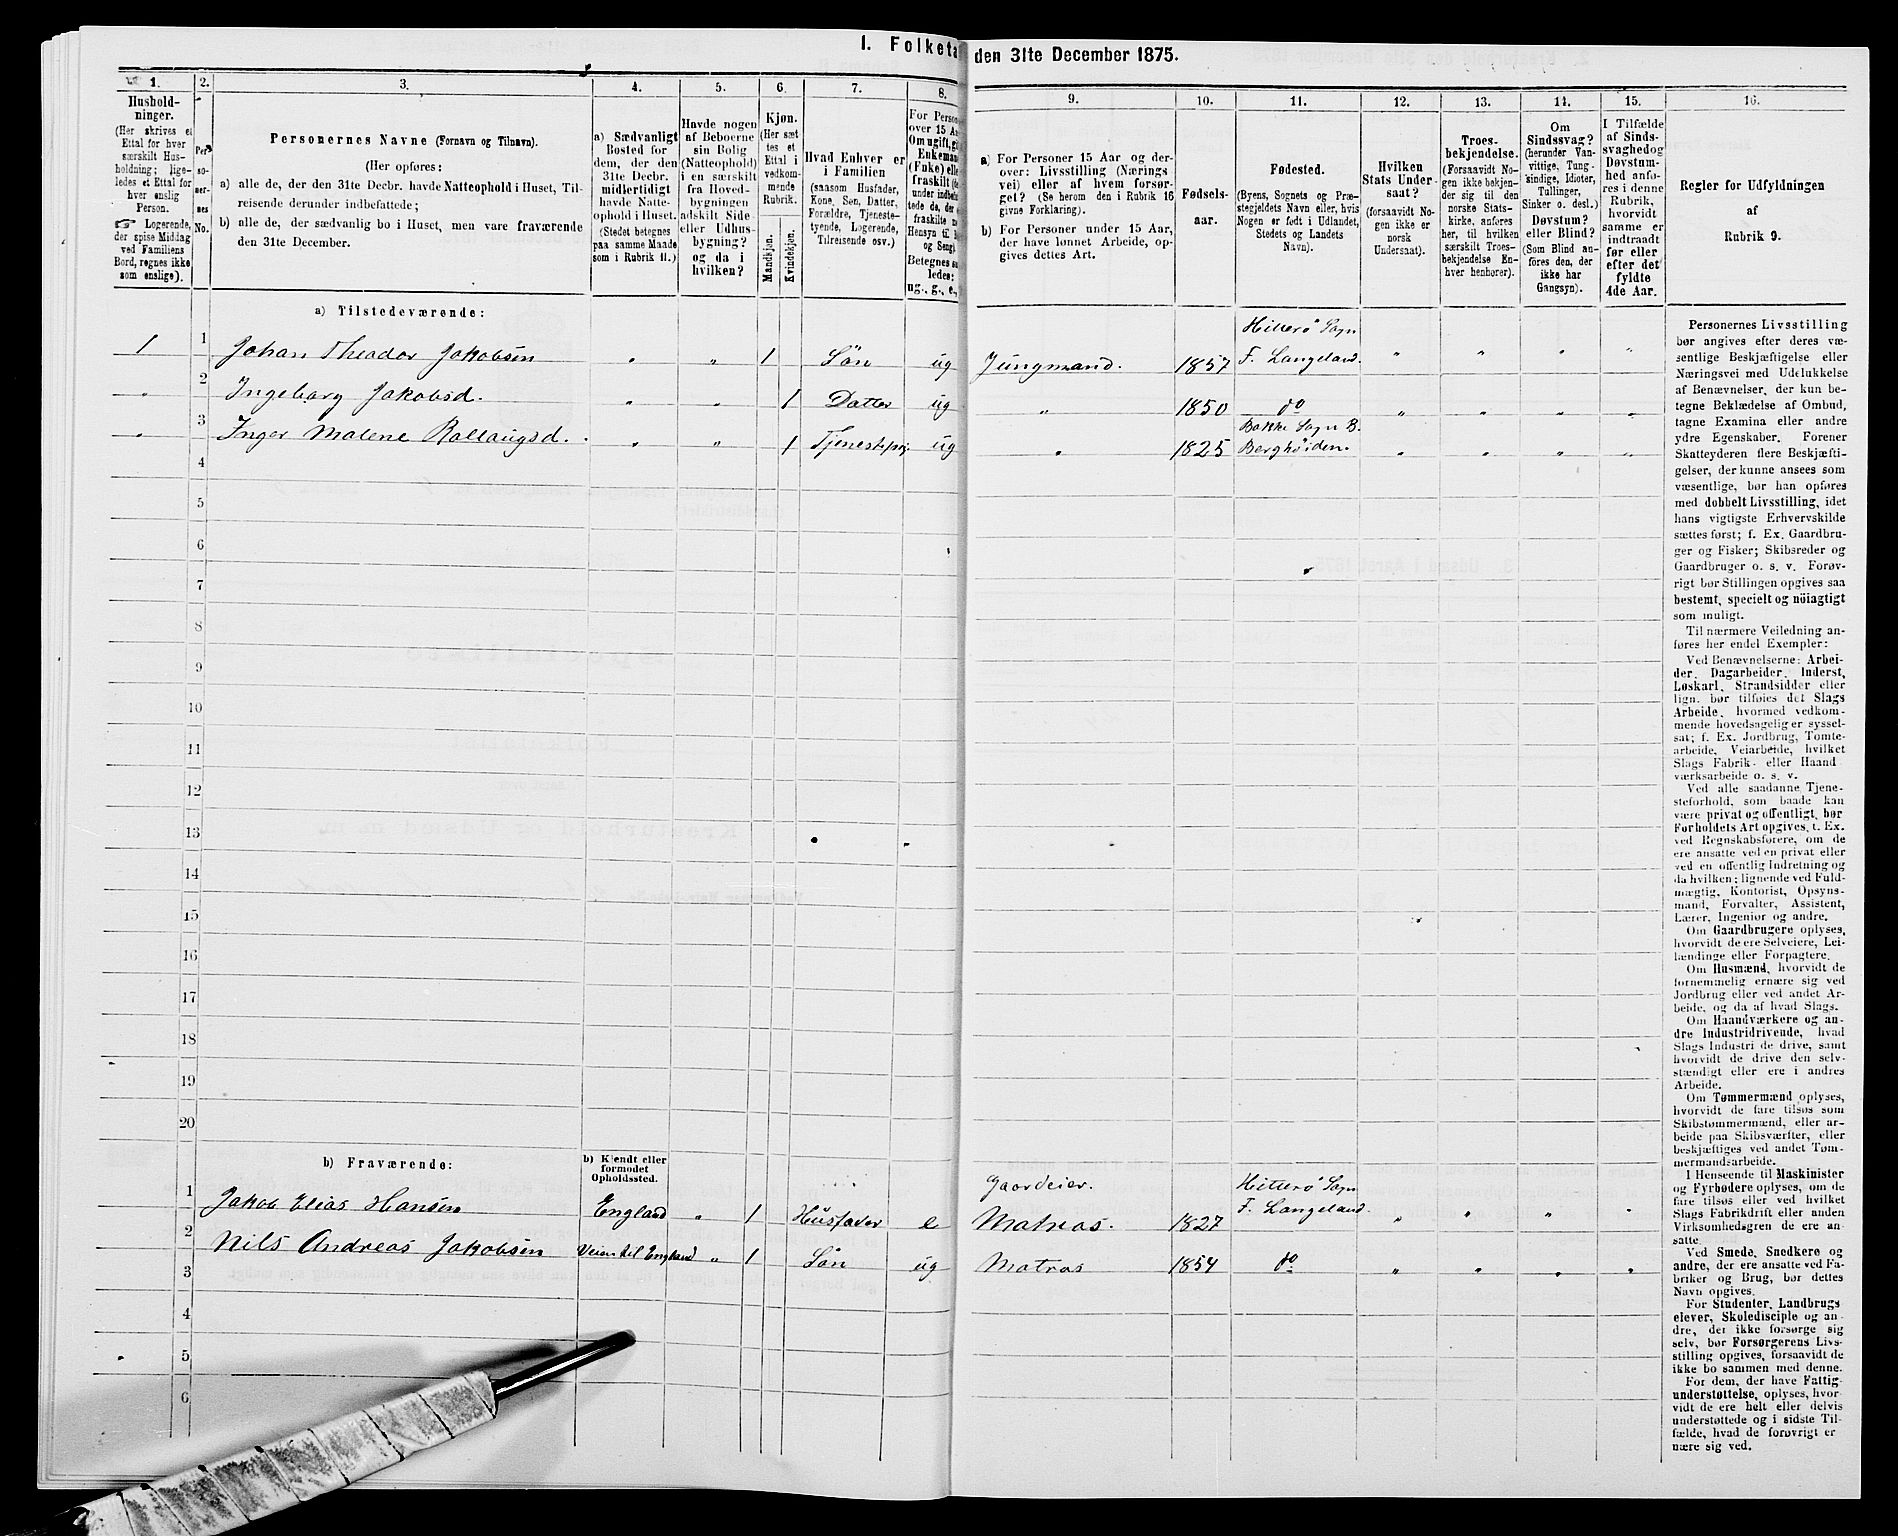 I. Folketæ den 31te December 1875.
1.
Hushold-
ninger.
(Her skrives et
Ettal for hver
særskilt Hus-
holdning; lige-
ledes et Ettal for
hver enslig
Person.
☞ Logerende,
der spise Middag
ved Familiens
Bord, regnes ikke
som enslige).
2.
Per-
so-
ner-
nes
No.
3.
Personernes Navne (Fornavn og Tilnavn).
(Her opføres:
a) alle de, der den 31te Decbr. havde Natteophold i Huset, Til-
reisende derunder indbefattede;
b) alle de, der sædvanlig bo i Huset, men vare fraværende
den 31te December.
4.
a) Sædvanligt
Bosted for
dem, der den
31te Decbr.
midlertidigt
havde Natte-
ophold i Huset.
(Stedet betegnes
paa samme Maade
som i Rubrik 11.)
5.
Havde nogen
af Beboerne
sin Bolig
(Natteophold)
i en særskilt
fra Hoved-
bygningen
adskilt Side-
eller Udhus-
bygning?
og da i
hvilken?
6.
Kjøn.
(Her sæt-
tes et
Ettal i
vedkom-
mende
Rubrik.
Mandkjøn.
Kvindekjøn.
7.
Hvad Enhver er
i Familien
(saasom Husfader,
Kone, Søn, Datter,
Forældre, Tjeneste-
tyende, Logerende,
Tilreisende osv.)
8.
For Person
over 15 Aa
Om ugift, gi
Enkemand
(Enke) elle
fraskilt (
under indbe
tede de, der
fraskilte
Hensyn til B
og Seng
Betegnes sa
ledes:
ug., g., e.,
9.
a) For Personer 15 Aar og der-
over: Livsstilling (Nærings-
vei) eller af hvem forsør-
get? (Se herom den i Rubrik 16
givne Forklaring).
b) For Personer under 15 Aar,
der have lønnet Arbeide, op-
gives dettes Art.
10.
Fødsels-
aar.
11.
Fødested.
(Byens, Sognets og Præ-
stegjeldets Navn eller, hvis
Nogen er født i Udlandet,
Stedets og Landets
Navn).
12.
Hvilken
Stats Under-
saat?
(forsaavidt No-
gen ikke er
norsk
Undersaat).
13.
Troes-
bekjendelse.
(Forsaavidt No-
gen ikke bekjen-
der sig til den
norske Stats-
kirke, anføres
her, til hvilken
særskilt Troes-
bekjendelse En-
hver henhører).
14.
Om
Sindssvag?
(herunder Van-
vittige, Tung-
sindige, Idioter,
Tullinger,
Sinker o. desl.)
Døvstum?
eller Blind?
(Som Blind an-
føres den, der
ikke har
Gangsyn).
15.
I Tilfælde
af Sinds-
svaghed og
Døvstum-
hed anfø-
res i denne
Rubrik,
hvorvidt
samme er
indtraadt
før eller
efter det
fyldte
4de Aar.
16.
Regler for Udfyldningen
af
Rubrik 9.
a) Tilstedeværende:
1 1 Johan Theodor Jakobsen " " 1 Søn ug Jungmand. 1857 Hitterö Sogn F. Langeland. " " " "
" 2 Ingeborg Jakobsd. " " 1 Datter ug " 1850 do " " " "
" 3 Inger Malene Rollaugsd. " " 1 ug " 1825 Bakke Sogn B. Berghöiden. " " " "
4
5
6
7
8
9
10
11
12
13
14
15
16
17
18
19
20
b) Fraværende:
b) Kjendt eller
formodet
Opholdssted.
1 Jakob Elias Hansen England " 1 Husfader e Gaardeier. Matros. 1827 Hitterö Sogn F. Langeland. " " " "
2 Nils Andreas Jakobsen Veien til England " 1 Søn ug Matros 1854 do " " " "
3
4
5
6
Personernes Livsstilling
bør angives efter deres væ-
sentlige Beskjæftigelse eller
Næringsvei med Udelukkelse
af Benævnelser, der kun be-
tegne Beklædelse af Ombud,
tagne Examina eller andre
ydre Egenskaber. Forener
Skatteyderen flere Beskjæfti-
gelser, der kunne ansees som
væsentlige, bør han opføres
med dobbelt Livsstilling, idet
hans vigtigste Erhvervskilde
sættes først; f. Ex. Gaardbru-
ger og Fisker; Skibsreder og
Gaardbruger o. s. v. Forøv-
rigt bør Stillingen opgives saa
bestemt, specielt og nöiagtigt
som muligt.
Til nærmere Veiledning an-
føres her endel Exempler:
Ved Benævnelserne: Arbei-
der, Dagarbeider, Inderst,
Løskarl, Strandsidder eller
lign. bør tilføies det Slags
Arbeide, hvormed vedkom-
mende hovedsagelig er syssel-
sat; f. Ex. Jordbrug, Tomte-
arbeide, Veiarbeide, hvilket
Slags Fabrik- eller Haand
værksarbeide o. s. v.
Ved alle saadanne Tjene-
steforhold, som baade kan
være privat og offentligt, bør
Forholdets Art opgives, f. Ex.
ved Regnskabsførere, om de
ere ansatte ved en privat eller
ved en offentlig Indretning og
da hvilken; lignende ved Fuld-
mægtig, Kontorist, Opsyns-
mand, Forvalter, Assistent,
Lærer, Ingeniør og andre.
Om Gaardbrugere oplyses,
hvorvidt de ere Selveiere, Lei-
lændinge eller Forpagtere.
Om Husmænd, hvorvidt de
fornemmelig ernære sig ved
Jordbrug eller ved andet Ar-
beide, og da af hvad Slags.
Om Haandværkere og an-
dre Industridrivende, hvad
Slags Industri de drive, samt
hvorvidt de drive den selv-
stændigt eller ere i andres
Arbeide.
Om Tømmermænd oplyses,
hvorvidt de fare tilsøs som
Skibstømmermænd, eller ar-
beide paa Skibsværfter, eller
beskjæftiges ved andet Tøm-
mermandsarbeide.
I Henseende til Maskinister
og Fyrbødere oplyses, om de
fare tilsøs eller ved hvilket
Slags Fabrikdrift eller anden
Virksomhedsgren de ere an-
satte.
Ved Smede, Snedkere og
andre, der ere ansatte ved Fa-
briker og Brug, bør dettes
Navn opgives.
For Studenter, Landbrugs-
elever, Skoledisciple og an-
dre, der ikke forsørge sig
selv, bør Forsørgerens Livs-
stilling opgives, forsaavidt de
ikke bo sammen med denne.
For dem, der have Fattig-
understøttelse, oplyses, hvor-
vidt de ere helt eller delvis
understøttede og i sidste Til-
fælde, hvad de forøvrigt er
nære sig ved.